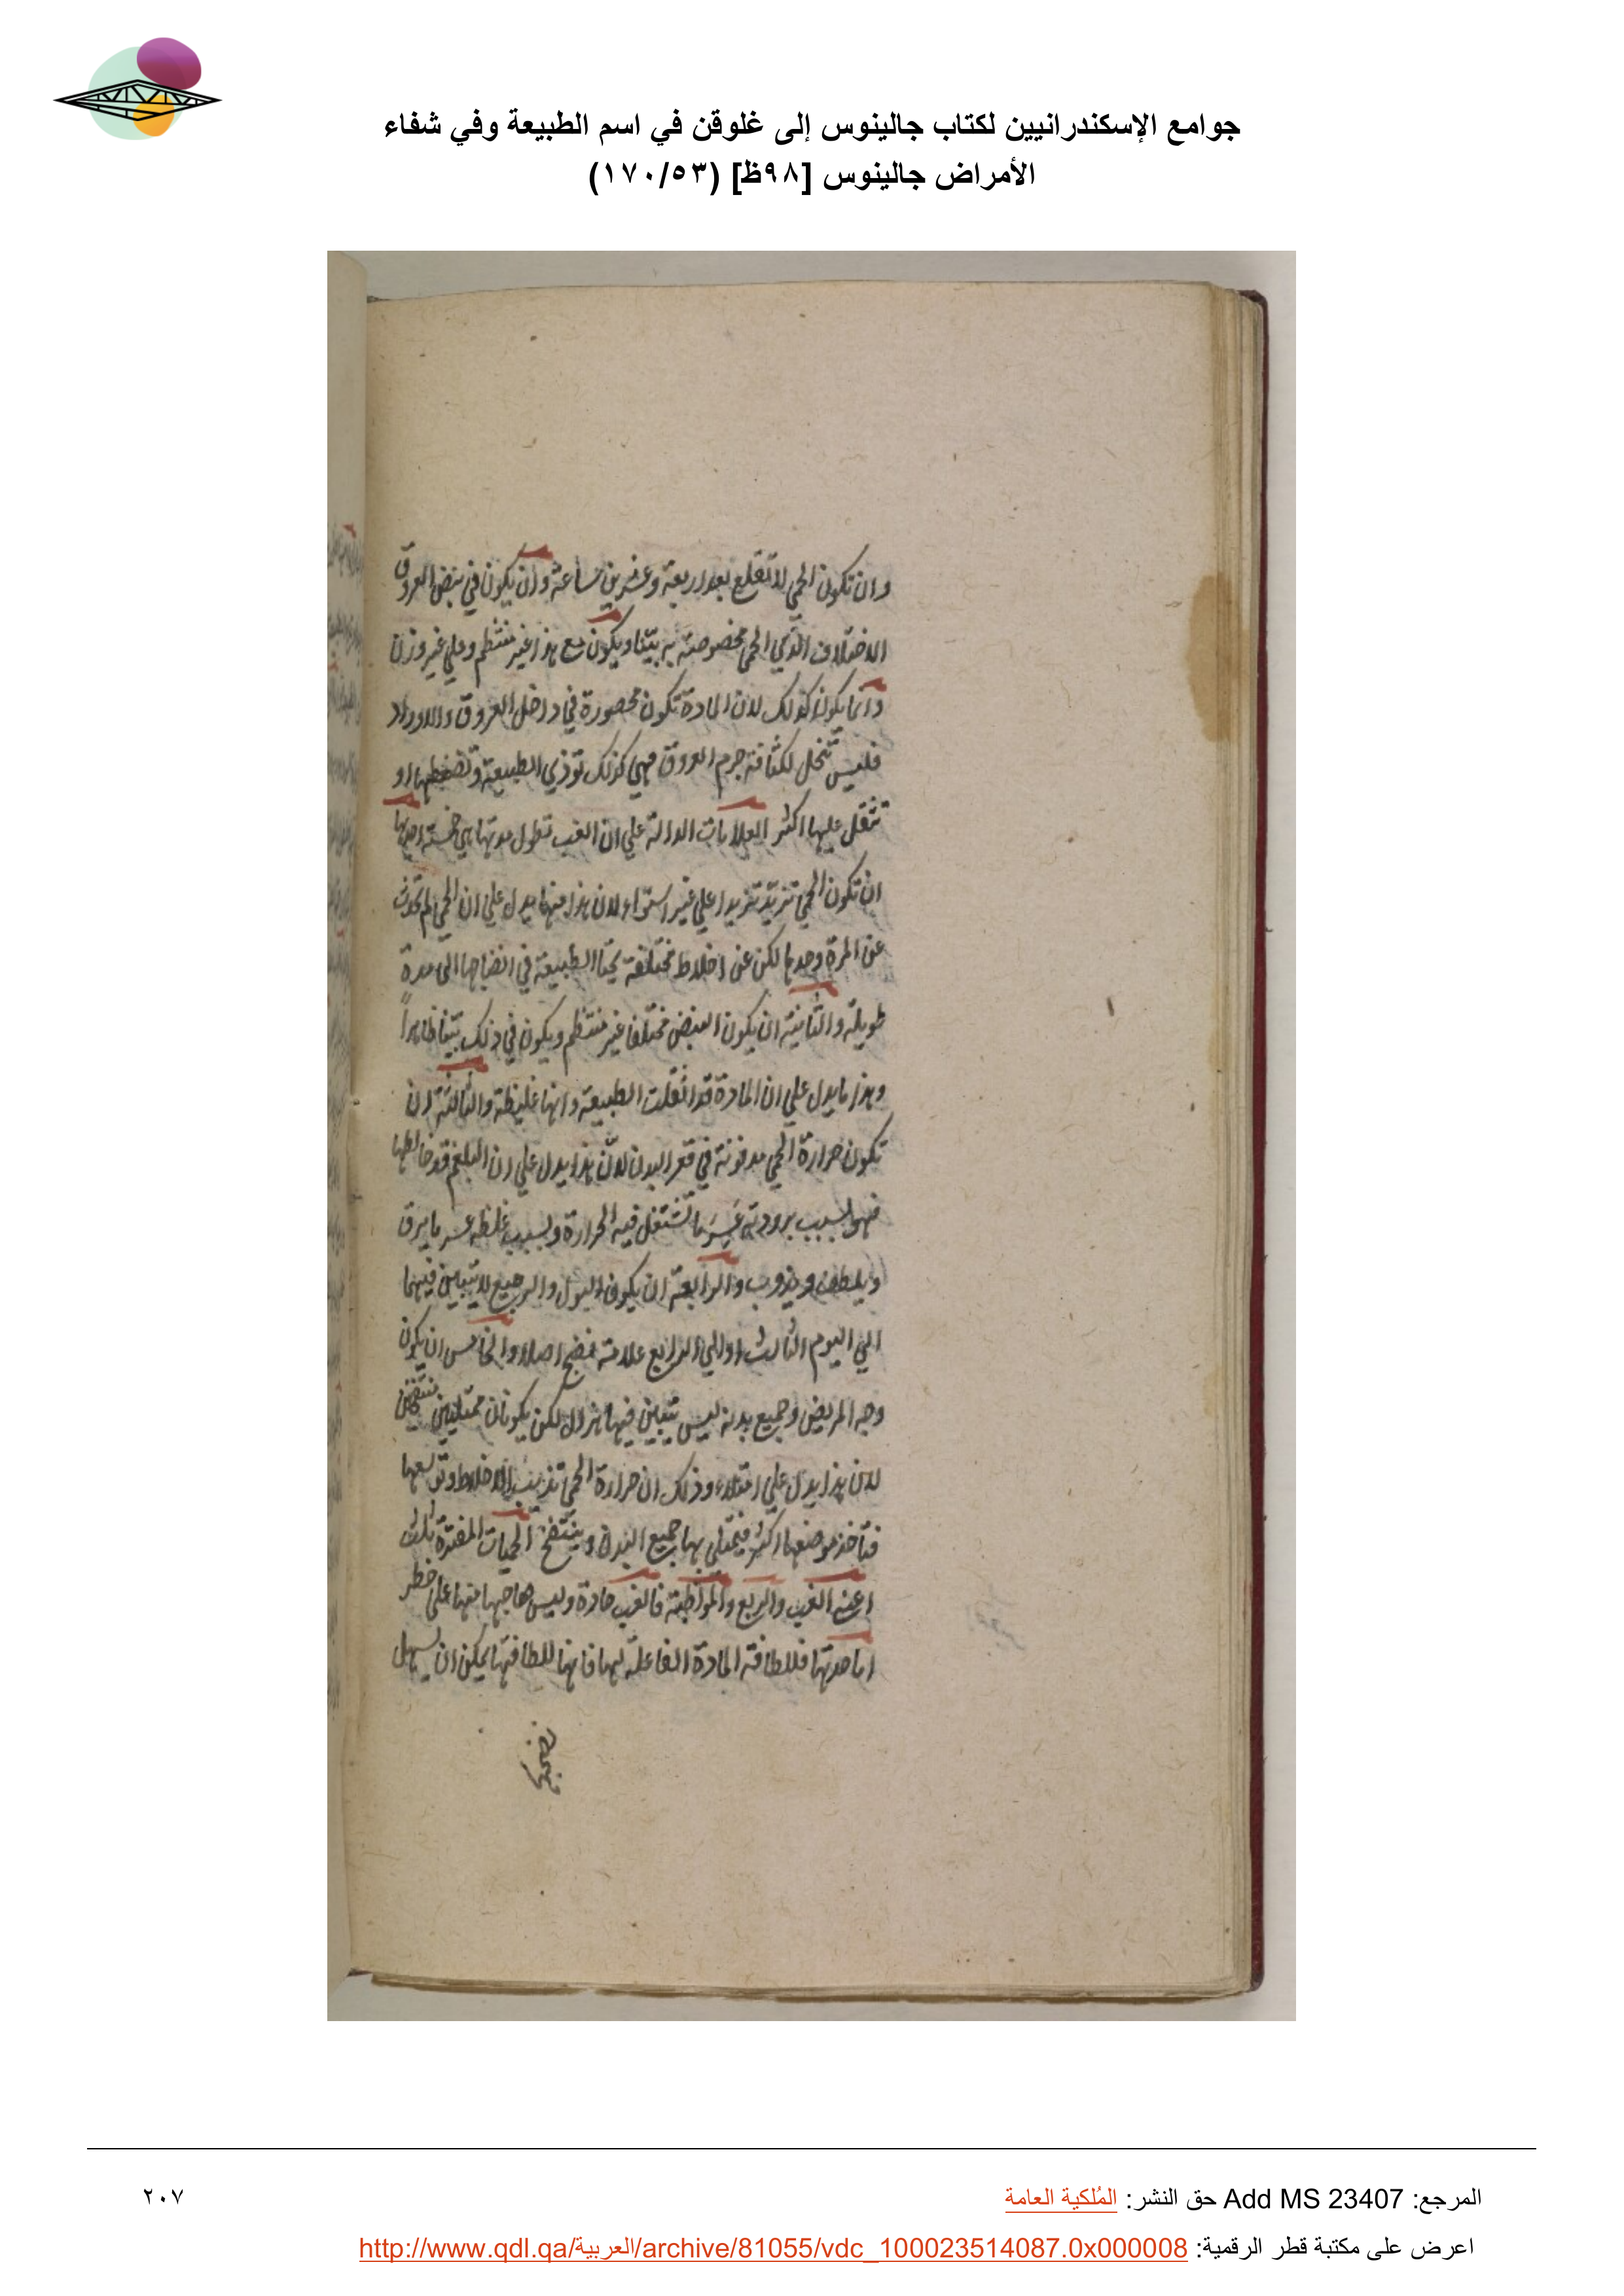 جوامع الإسكندرانيين لكتاب جالينوس إلى غلوقن في اسم الطبيعة وفي شفاء
الأمراض جالينوس [٩٨ظ] (١٧٠/٥٣)
وان تكون الحمي لا تقلع بعد اربعة وعشرين ساعة وان يكون في نبض العروق
الاختلاف الذي الحمي مخصوصة به بيّنا ويكون مع هذا غير منتظم وعلي غير وزن
وانما يكون كذلك لان المادة تكون محصورة في داخل العروق والاوراد
فليس تتحلل لكثافة جرم العروق فهي كذلك توذي الطبيعة وتضغطها او
تثقل عليها اكثر العلامات الدالة علي ان الغب تطول مدتها هي خمسة احديها
ان تكون الحمي تتزيد تزيدا علي غير استواء لان هذا منها يدل علي ان الحمي لم تحدث
عن المرة وحدها لكن عن اخلاط مختلفة تحتاج الطبيعة في انضاجها الي مدة
طويلة والثانية ان يكون النبض مختلفا غير منتظم ويكون في ذلك بيّنا ظاهراً
وهذا ما يدل علي ان المادة قد اثقلت الطبيعة وانها غليظة والثالثة ان
تكون حرارة الحمي مدفونة في قعر البدن لانّ هذا يدل علي ان البلغم قد خالطها
فهو بسبب برودته عَسِرَ ما تشتعل فيه الحرارة وبسبب غلظه عسر ما يرق
ويلطف ويذوب والرابعة ان يكون البول والرجيع لا يتبين فيهما
الي اليوم الثالث او الي الرابع علامة نضج اصلا والخامس ان يكون
وجه المريض وجميع بدنه ليس يتبين فيها هزال لكن يكونان ممتليين منتفخين
لان هذا يدل علي امتلاء وذلك ان حرارة الحمي تذيب الاخلاط
فتاخذ موضعا اكثر فيمتلي بها جميع البدن وينتفخ الحميات المفترة ثلث
اعني الغب والربع والمواظبة فالغب حادة وليس صاحبها منها علي خطر
اما حدتها فللطافة المادة الفاعلة لها فانها للطافتها يمكن ان يسهل
نضجها
المرجع: Add MS 23407 حق النشر: المُلكية العامة
٢٠٧
اعرض على مكتبة قطر الرقمية: http://www.qdl.qa/العربية/archive/81055/vdc_100023514087.0x000008